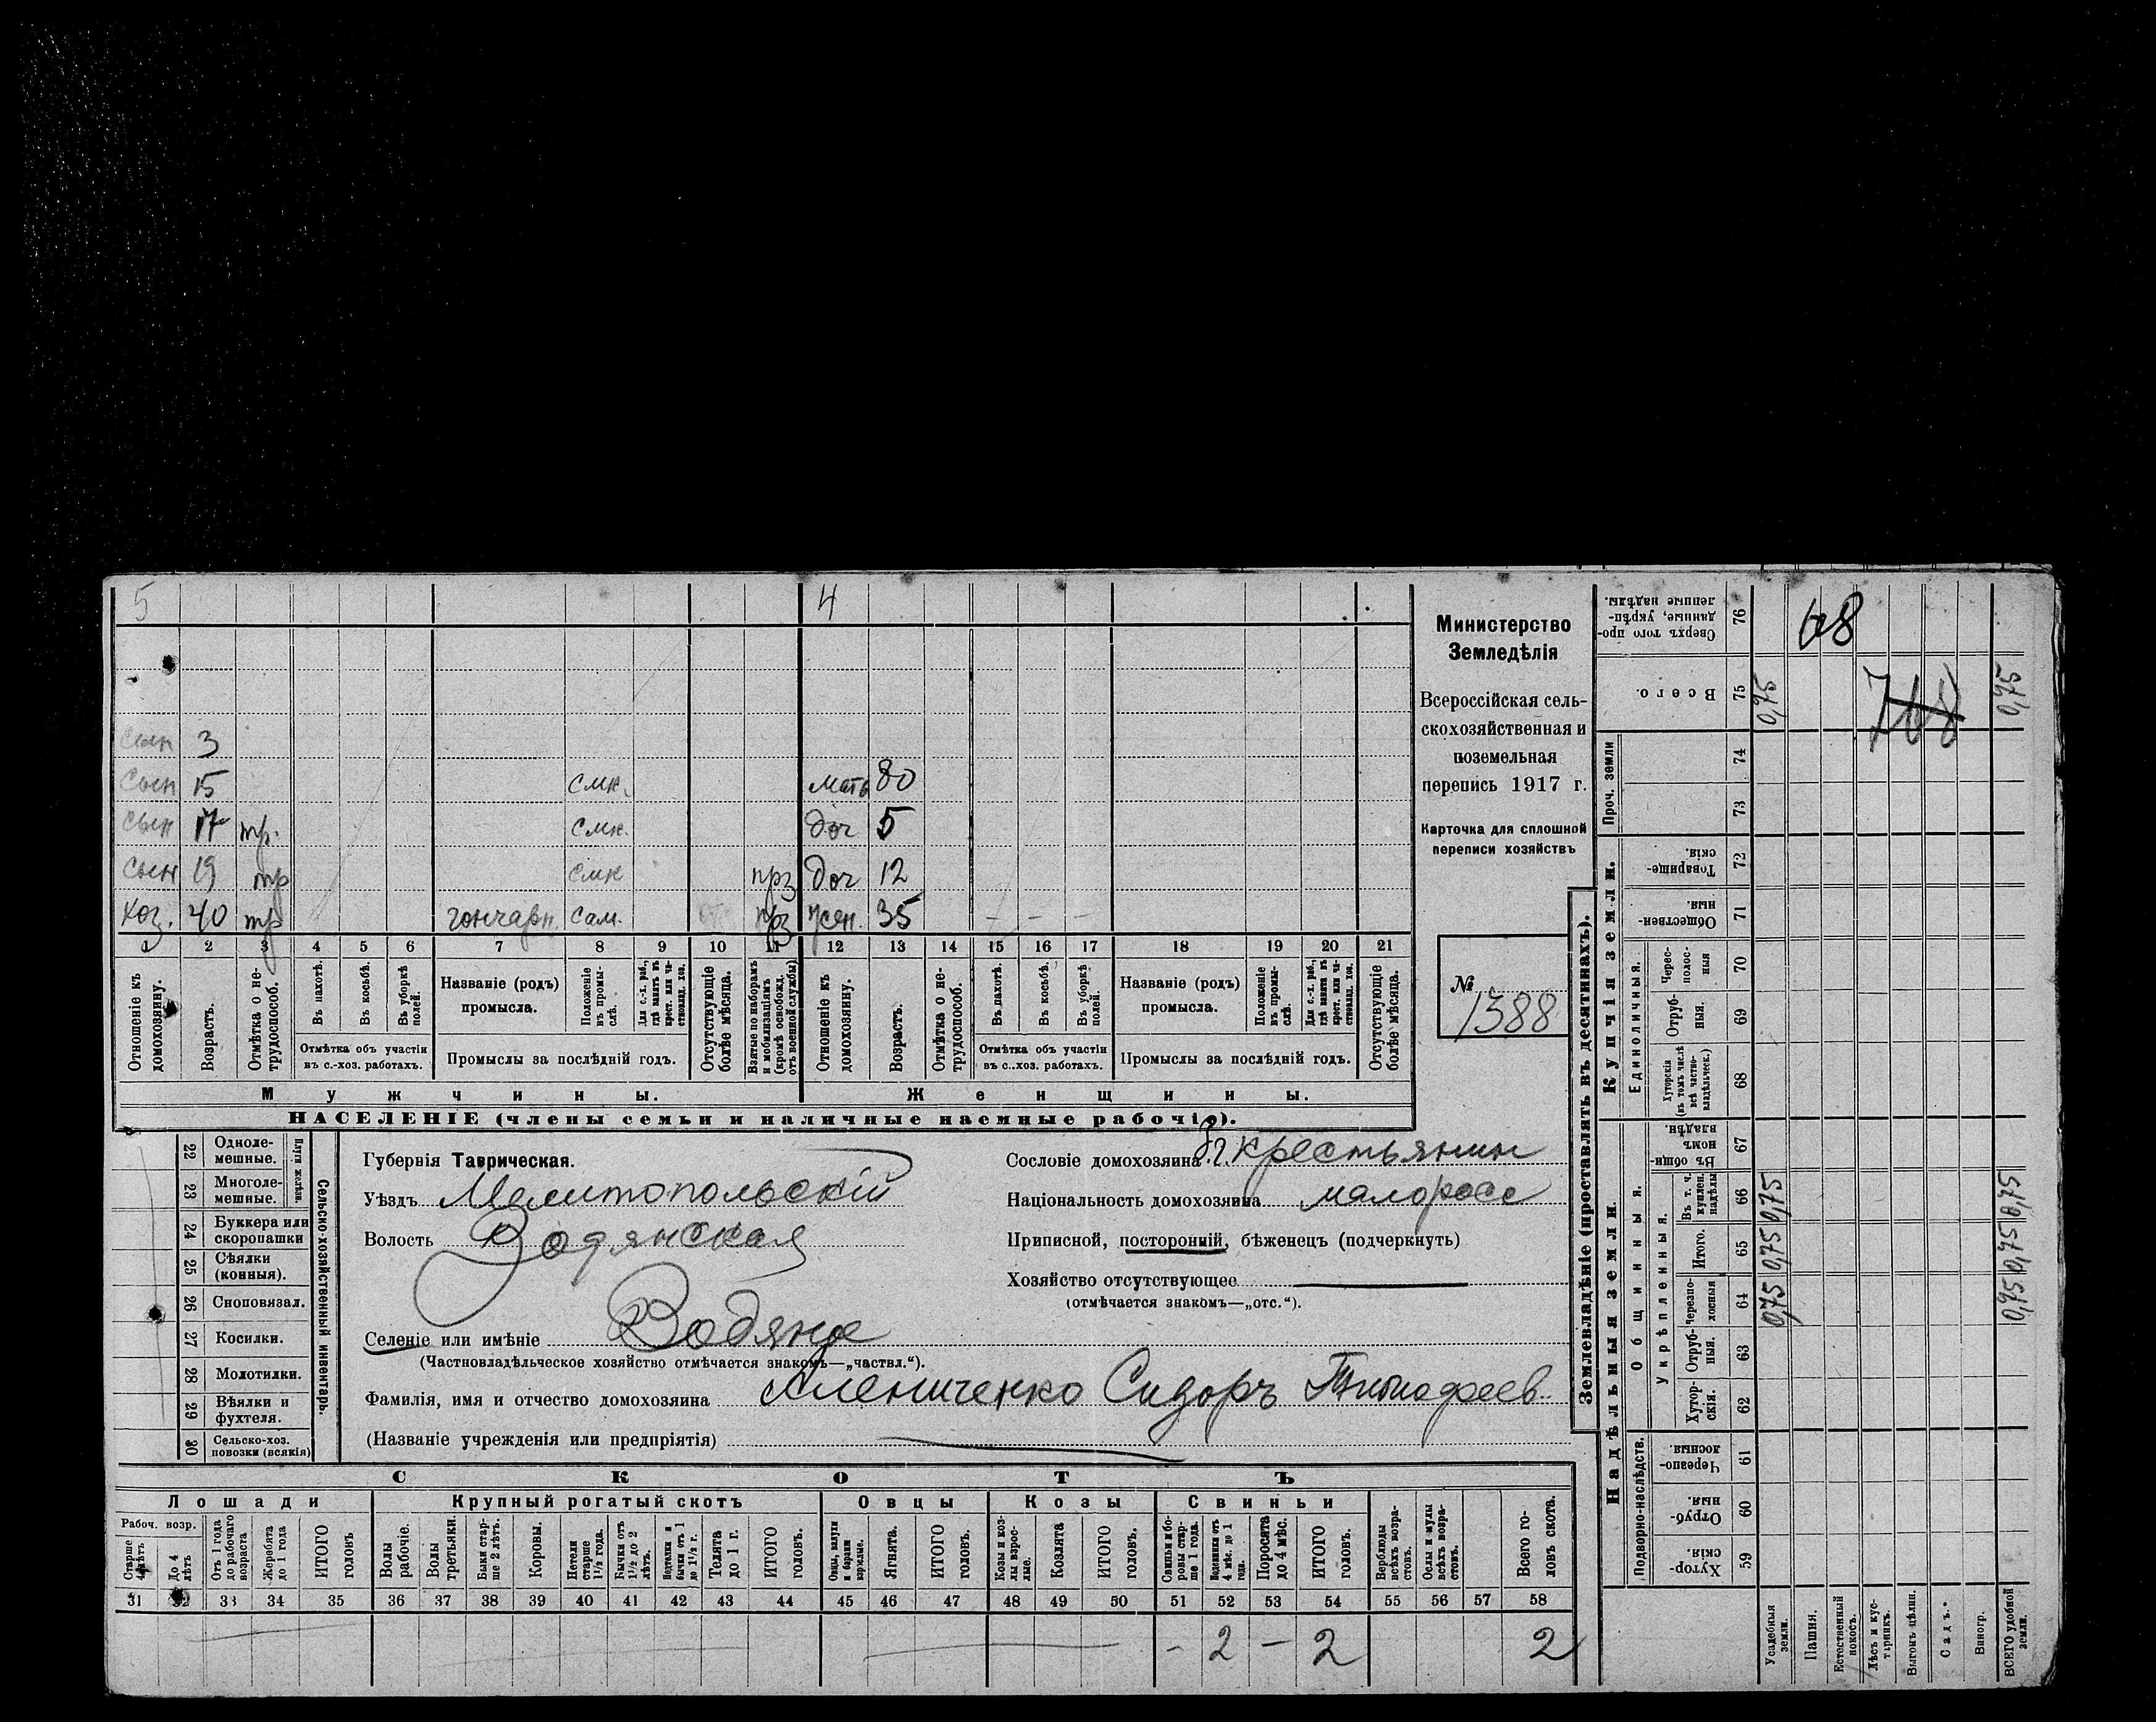 5 4
сын 3
сын 15 смк. мать 80
сын 17 тр. смк. доч 5
сын 19 тр смк прз доч 12
Хоз. 40 тр гончарн. сам. прз жен. 35 - - -
1 2 3 4 5 6 7 8 9 10 11 12 13 14 15 16 17 18 19 20 21
Отношеніе къ домохозяину.
Возрастъ.
Отмѣтка о нетрудоспособ.
Въ пахотѣ.
Въ косьбѣ.
Въ уборкѣ полей.
Отмѣтка объ участіи въ с.-хоз. работахъ.
Названіе (родъ) промысла.
Положеніе въ промыслѣ.
Для с.-х. раб., гдѣ занятъ въ крест. или частновлад. хоз.
Промыслы за послѣдній годъ.
Отсутствующіе болѣе мѣсяца.
Взятые по наборамъ и мобилизаціямъ (кромѣ освобожд. отъ военной службы)
Отношеніе къ домохозяину.
Возрастъ.
Отмѣтка о нетрудоспособ.
Въ пахотѣ.
Въ косьбѣ.
Въ уборкѣ полей.
Отмѣтка объ участіи въ с.-хоз. работахъ.
Названіе (родъ) промысла.
Положеніе въ промыслѣ.
Для с.-х. раб., гдѣ занятъ въ крест. или частновлад. хоз.
Промыслы за послѣдній годъ.
Отсутствующіе болѣе мѣсяца.
Мужчины. Женщины.
НАСЕЛЕНІЕ (члены семьи и наличные наемные рабочіе).
Министерство
Земледѣлія
Всероссійская сель-
скохозяйственная и
поземельная
перепись 1917 г.
Карточка для сплошной
переписи хозяйствъ
№
1388
22 Одноле-мешные.
23 Многоле-мешные.
Плуги желѣзн.
24 Буккера или скоропашки
25 Сѣялки (конныя).
26 Сноповязал.
27 Косилки.
28 Молотилки.
29 Вѣялки и фухтеля.
30 Сельско-хоз. повозки (всякія)
Сельско-хозяйственный инвентарь.
Губернія Таврическая.
Уѣздъ Мелитопольскій
Волость Водянская
Селеніе или имѣніе Водяное
(Частновладѣльческое хозяйство отмѣчается знакомъ—„частвл.“).
Фамилія, имя и отчество домохозяина Алениченко Сидоръ Тимофеев
(Названіе учрежденія или предпріятія)
Сословіе домохозяина крестьянин
Національность домохозяина малоросс
Приписной, посторонній, бѣженецъ (подчеркнуть)
Хозяйство отсутствующее
(отмѣчается знакомъ—„отс.“).
СКОТЪ
Лошади Крупный рогатый скотъ Овцы Козы Свиньи
Рабоч. возр.
Старше 4 лѣтъ
До 4 лѣтъ
Отъ 1 года до рабочаго возраста
Жеребята до 1 года
ИТОГО головъ
Волы рабочіе.
Волы третьяки.
Быки старше 2 лѣтъ.
Коровы.
Нетели старше 1½ года.
Бычки отъ 1½ до 2 лѣтъ.
Подтелки и бычки отъ 1 до 1½ г.
Телята до 1 г.
ИТОГО головъ.
Овцы, валухи и бараны взрослые.
Ягнята.
ИТОГО головъ.
Козы и козлы взрослые.
Козлята
ИТОГО головъ.
Свиньи и боровы старше 1 года.
Подсвинки отъ 4 мѣс. до 1 года.
Поросята до 4 мѣс.
ИТОГО головъ.
Верблюды всѣхъ возрастовъ.
Ослы и мулы всѣхъ возрастовъ.
Всего головъ скота.
31 32 33 34 35 36 37 38 39 40 41 42 43 44 45 46 47 48 49 50 51 52 53 54 55 56 57 58
- 2 - 2 2
Землевладѣніе (проставлять въ десятинахъ).
Надѣльныя земли. Купчія земли.
Проч. земли
Подворно-наслѣдств.
Общинныя.
Укрѣпленныя.
Единоличныя.
Хуторскія. 59
Отрубныя. 60
Черезполосныя. 61
Хуторскія. 62
Отрубныя. 63
Черезполосныя 64
Итого. 65
Въ т. ч. куплен. надѣлы 66
Въ общинномъ владѣн. 67
Хуторскія (въ томъ числѣ всѣ частновладѣльческ.) 68
Отрубныя. 69
Чересполосныя 70
Общественныя. 71
Товарищескія. 72
73
74
Всего. 75
Сверхъ того проданные, укрѣпленные надѣлы. 76
Усадебныя земли. 0,75 0,75 0,75 0,75
Пашня.
Естественный покосъ.
Лѣсъ и кустарникъ.
Выгонъ, цѣлин.
Садъ.
Виногр.
ВСЕГО удобной земли. 0,75 0,75 0,75 0,75
68
768